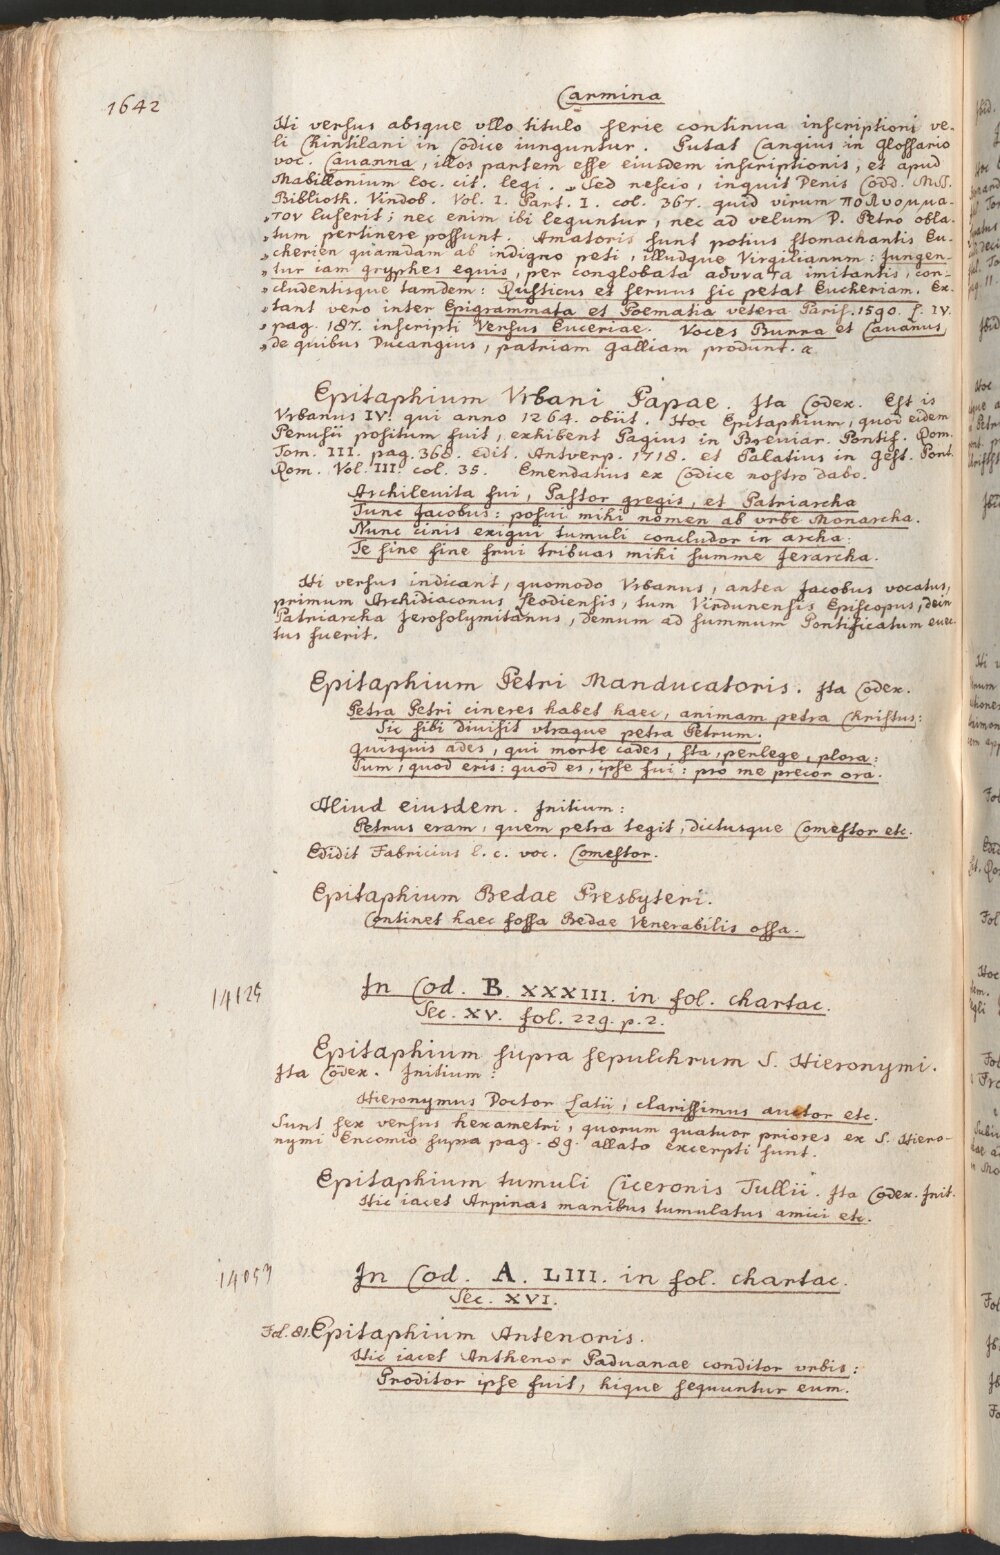 1642
Carmina
Hi versus absque vllo titulo serie continua inscriptioni ve-
li Chintilani in Codice iunguntur. Putat Cangius in Glossario
voc. Cavanna, illos partem esse eiusdem inscriptionis, et apud
Mabillonium loc. cit. legi. „Sed nescio, inquit Denis Codd. MSS.
Biblioth. Vindob. Vol. I. Part. I. col. 367. quid virum πολυομμα-
„τον luserit; nec enim ibi leguntur, nec ad velum D. Petro obla-
„tum pertinere possunt. Amatoris sunt potius stomachantis Eu-
„cherien quamdam ab indigno peti, illudque Virgilianum: Jungen-
„tur iam gryphes equis, per conglobata αδυνατα imitantis, con-
„cludentisque tamdem: Rusticus et seruus sic petat Eucheriam. Ex-
„tant vero inter Epigrammata et Poematia vetera Paris. 1590. L. IV.
„pag. 187. inscripti Versus Euceriae. Voces Burra et Cavanus,
„de quibus Ducangius, patriam Galliam produnt. a
Epitaphium Vrbani Papae. Ita Codex. Est is
Vrbanus IV. qui anno 1264. obiit. Hoc Epitaphium, quod eidem
Perusii positum fuit, exhibent Pagius in Breviar. Pontif. Rom.
Tom. III. pag. 368. edit. Antverp. 1718. et Palatius in Gest. Pont.
Rom. Vol. III. col. 35. Emendatius ex Codice nostro dabo.
Archilevita fui, Pastor gregis, et Patriarcha
Tunc Jacobus: posui mihi nomen ab vrbe Monarcha.
Nunc cinis exigui tumuli concludor in archa:
Te sine fine frui tribuas mihi summe Jerarcha.
Hi versus indicant, quomodo Vrbanus, antea Jacobus vocatus,
primum Archidiaconus Leodiensis, tum Virdunensis Episcopus, dein
Patriarcha Jerosolymitanus, demum ad summum Pontificatum euec-
tus fuerit.
Epitaphium Petri Manducatoris. Ita Codex.
Petra Petri cineres habet haec, animam petra Christus:
Sic sibi diuisit vtraque petra Petrum.
Quisquis ades, qui morte cades, sta, perlege, plora:
Sum, quod eris: quod es, ipse fui: pro me precor ora.
Aliud eiusdem. Initium:
Petrus eram, quem petra tegit, dictusque Comestor etc.
Edidit Fabricius l. c. voc. Comestor.
Epitaphium Bedae Presbyteri.
Continet haec fossa Bedae Venerabilis ossa.
14125
In Cod. B. XXXIII. in fol. chartac.
Sec. XV. fol. 229. p. 2.
Epitaphium supra sepulchrum S. Hieronymi.
Ita Codex. Initium:
Hieronymus Doctor Latii, clarissimus auctor etc.
Sunt sex versus hexametri, quorum quatuor priores ex S. Hiero-
nymi Encomio supra pag. 89. allato excerpti sunt.
Epitaphium tumuli Ciceronis Tullii. Ita Codex. Init.
Hic iacet Arpinas manibus tumulatus amici etc.
14053
In Cod. A. LIII. in fol. chartac.
Sec. XVI.
Fol. 81. Epitaphium Antenoris.
Hic iacet Anthenor Paduanae conditor vrbis:
Proditor ipse fuit, hique sequuntur eum.